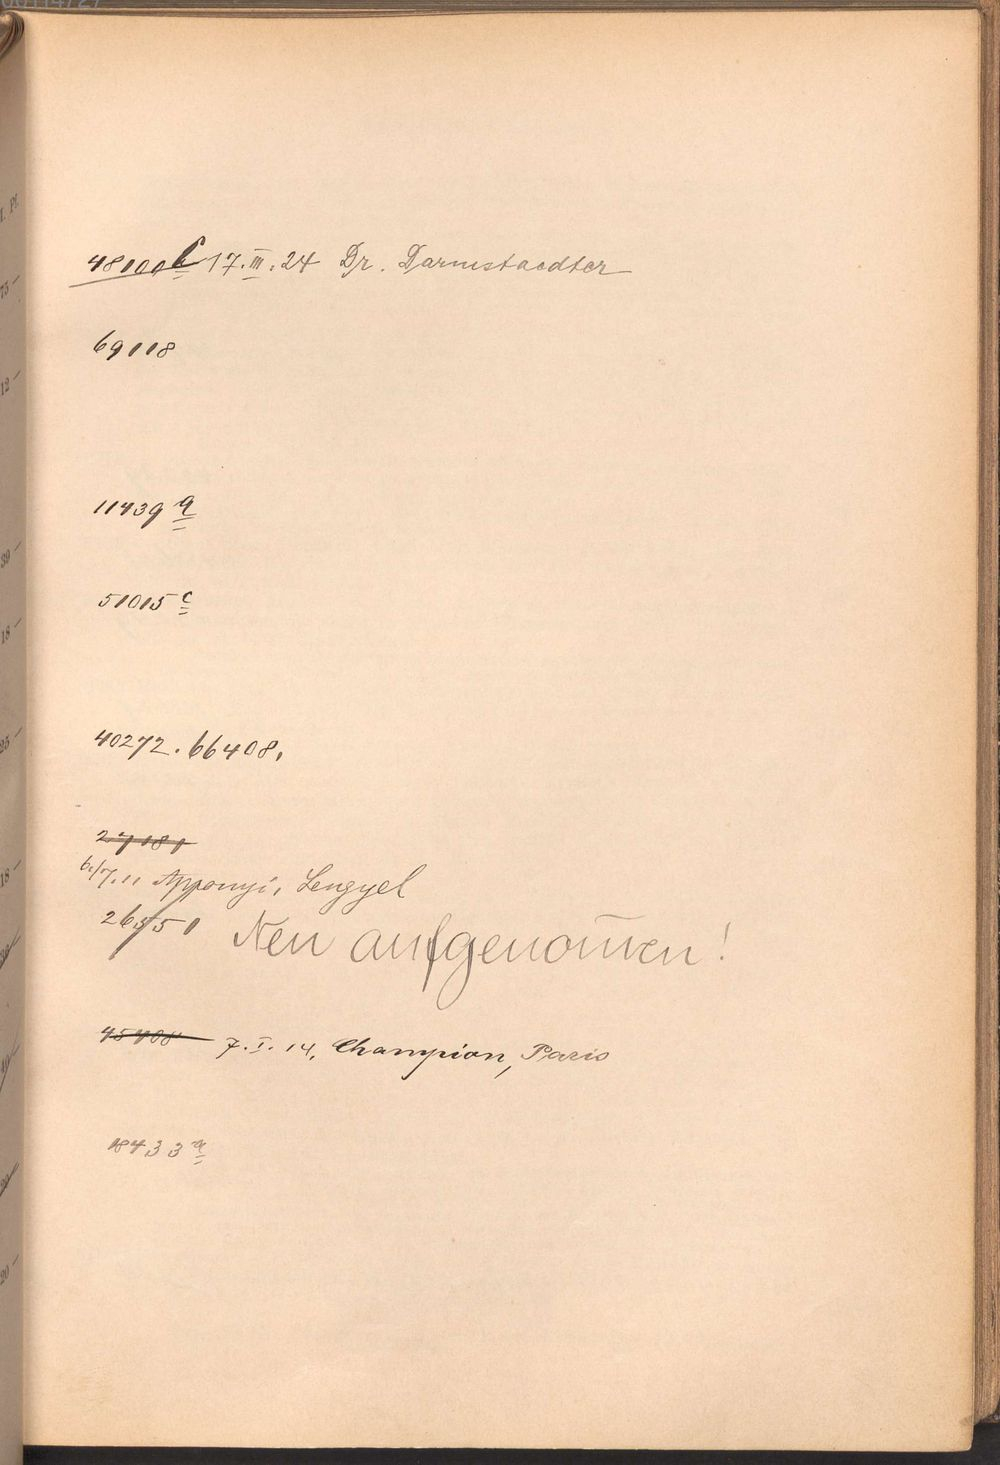 48100b 17.III.24 Dr. Darmstaedter
69118
11439a
51015c
40272. 66408.
27181
6/7.11 Apponyi, Lengyel
26550 Neu aufgenom̅en!
45408 7.I.14. Champion, Paris
18433a